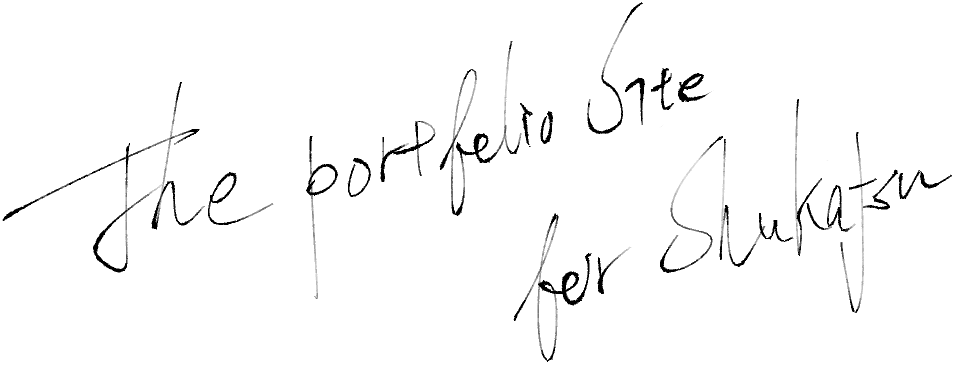 The portfolio Site
for Shukatsu